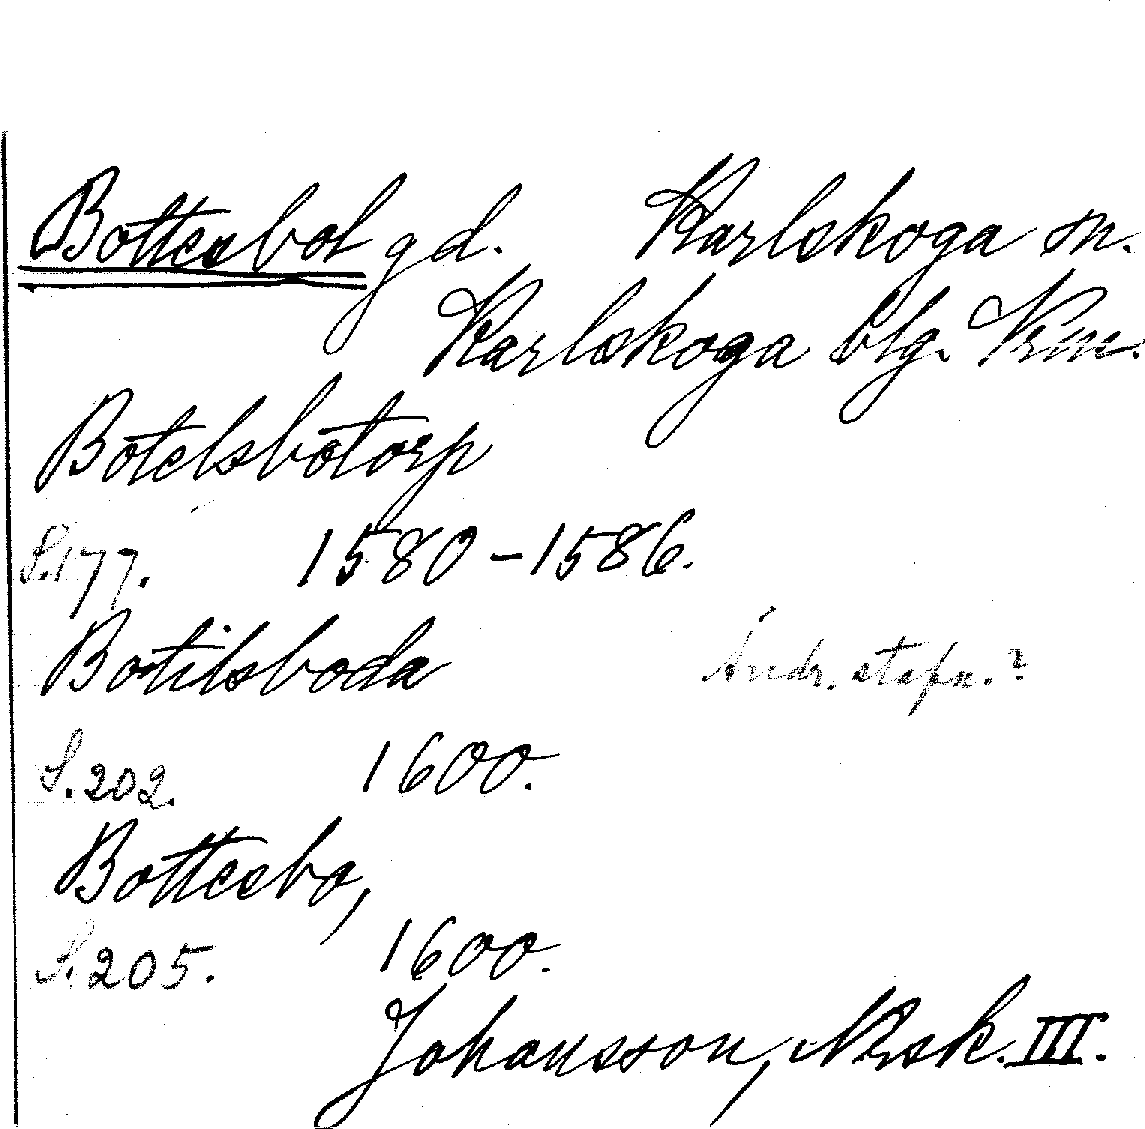 Bottesbol gd. Karlskoga sn.
Karlskoga blg. Vrm.
Botelsbotorp
S. 177. 1580-1586.
Botilsboda Ändr. stafn.?
S. 202. 1600.
Bottesbo,
S. 205. 1600.
Johansson, Nrsk. III.